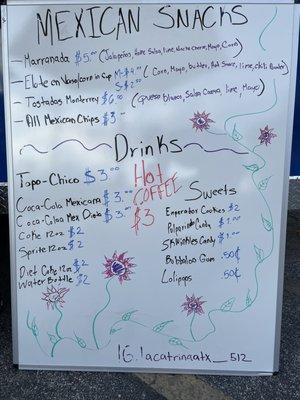 MEXICAN SNACKS
- Marranada $5.00 (Jalapeños, Home Salsa, lime, Nacho Cheese, Mayo, Corn)
- Elote en Vaso/corn in Cup M-$4.00 (Corn, Mayo, butter, Hot Sauce, lime, chili Powder)
S-$2.00
- Tostados Monterrey $6.00 (Queso blanco, Salsa Casera, lime, Mayo)
- All Mexican Chips $3
Drinks
Topo-Chico $3.00
Coca-Cola Mexicana $3.00
Coca-Cola Mex Dieta $3.00
Coke 12oz $2
Sprite 12oz $2
Diet Coke 12oz $2
Water Bottle $2
Hot
COFFEE
$3
Sweets
Emperador Cookies $2
Pulparindo Candy $1.00
Skwinkles Candy $1.00
Bubbaloo Gum .50¢
Lolipops .50¢
IG. lacatrinaatx_512